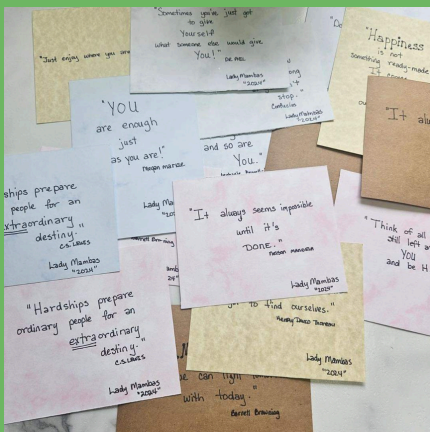 "Sometimes you've just got
to give
Yourself
what someone else would give
You!"
DR PHIL
Lady Mambas
"2024"
"Just enjoy where you are
"Happiness
is not
something ready-made
It
"YOU
are enough
just
as you are!"
Meagan Markle
Lady Ma
stop."
Confucius
Lady Mambas
"2024"
and so are
You."
"It alw
ships prepare
people for an
extraordinary
destiny."
C.S. LEWIS
Lady Mambas
"2024"
"It always seems impossible
until it's
DONE."
Nelson Mandela
Lady Mambas
"2024"
"Think of all
still left a
YOU
and be H
"Hardships prepare
ordinary people for an
extraordinary
destiny."
C.S. LEWIS
Lady Mambas
"2024"
to find ourselves."
Henry David Thoreau
Lady Mambas
"2024"
can light
with today."
Barrett Browning